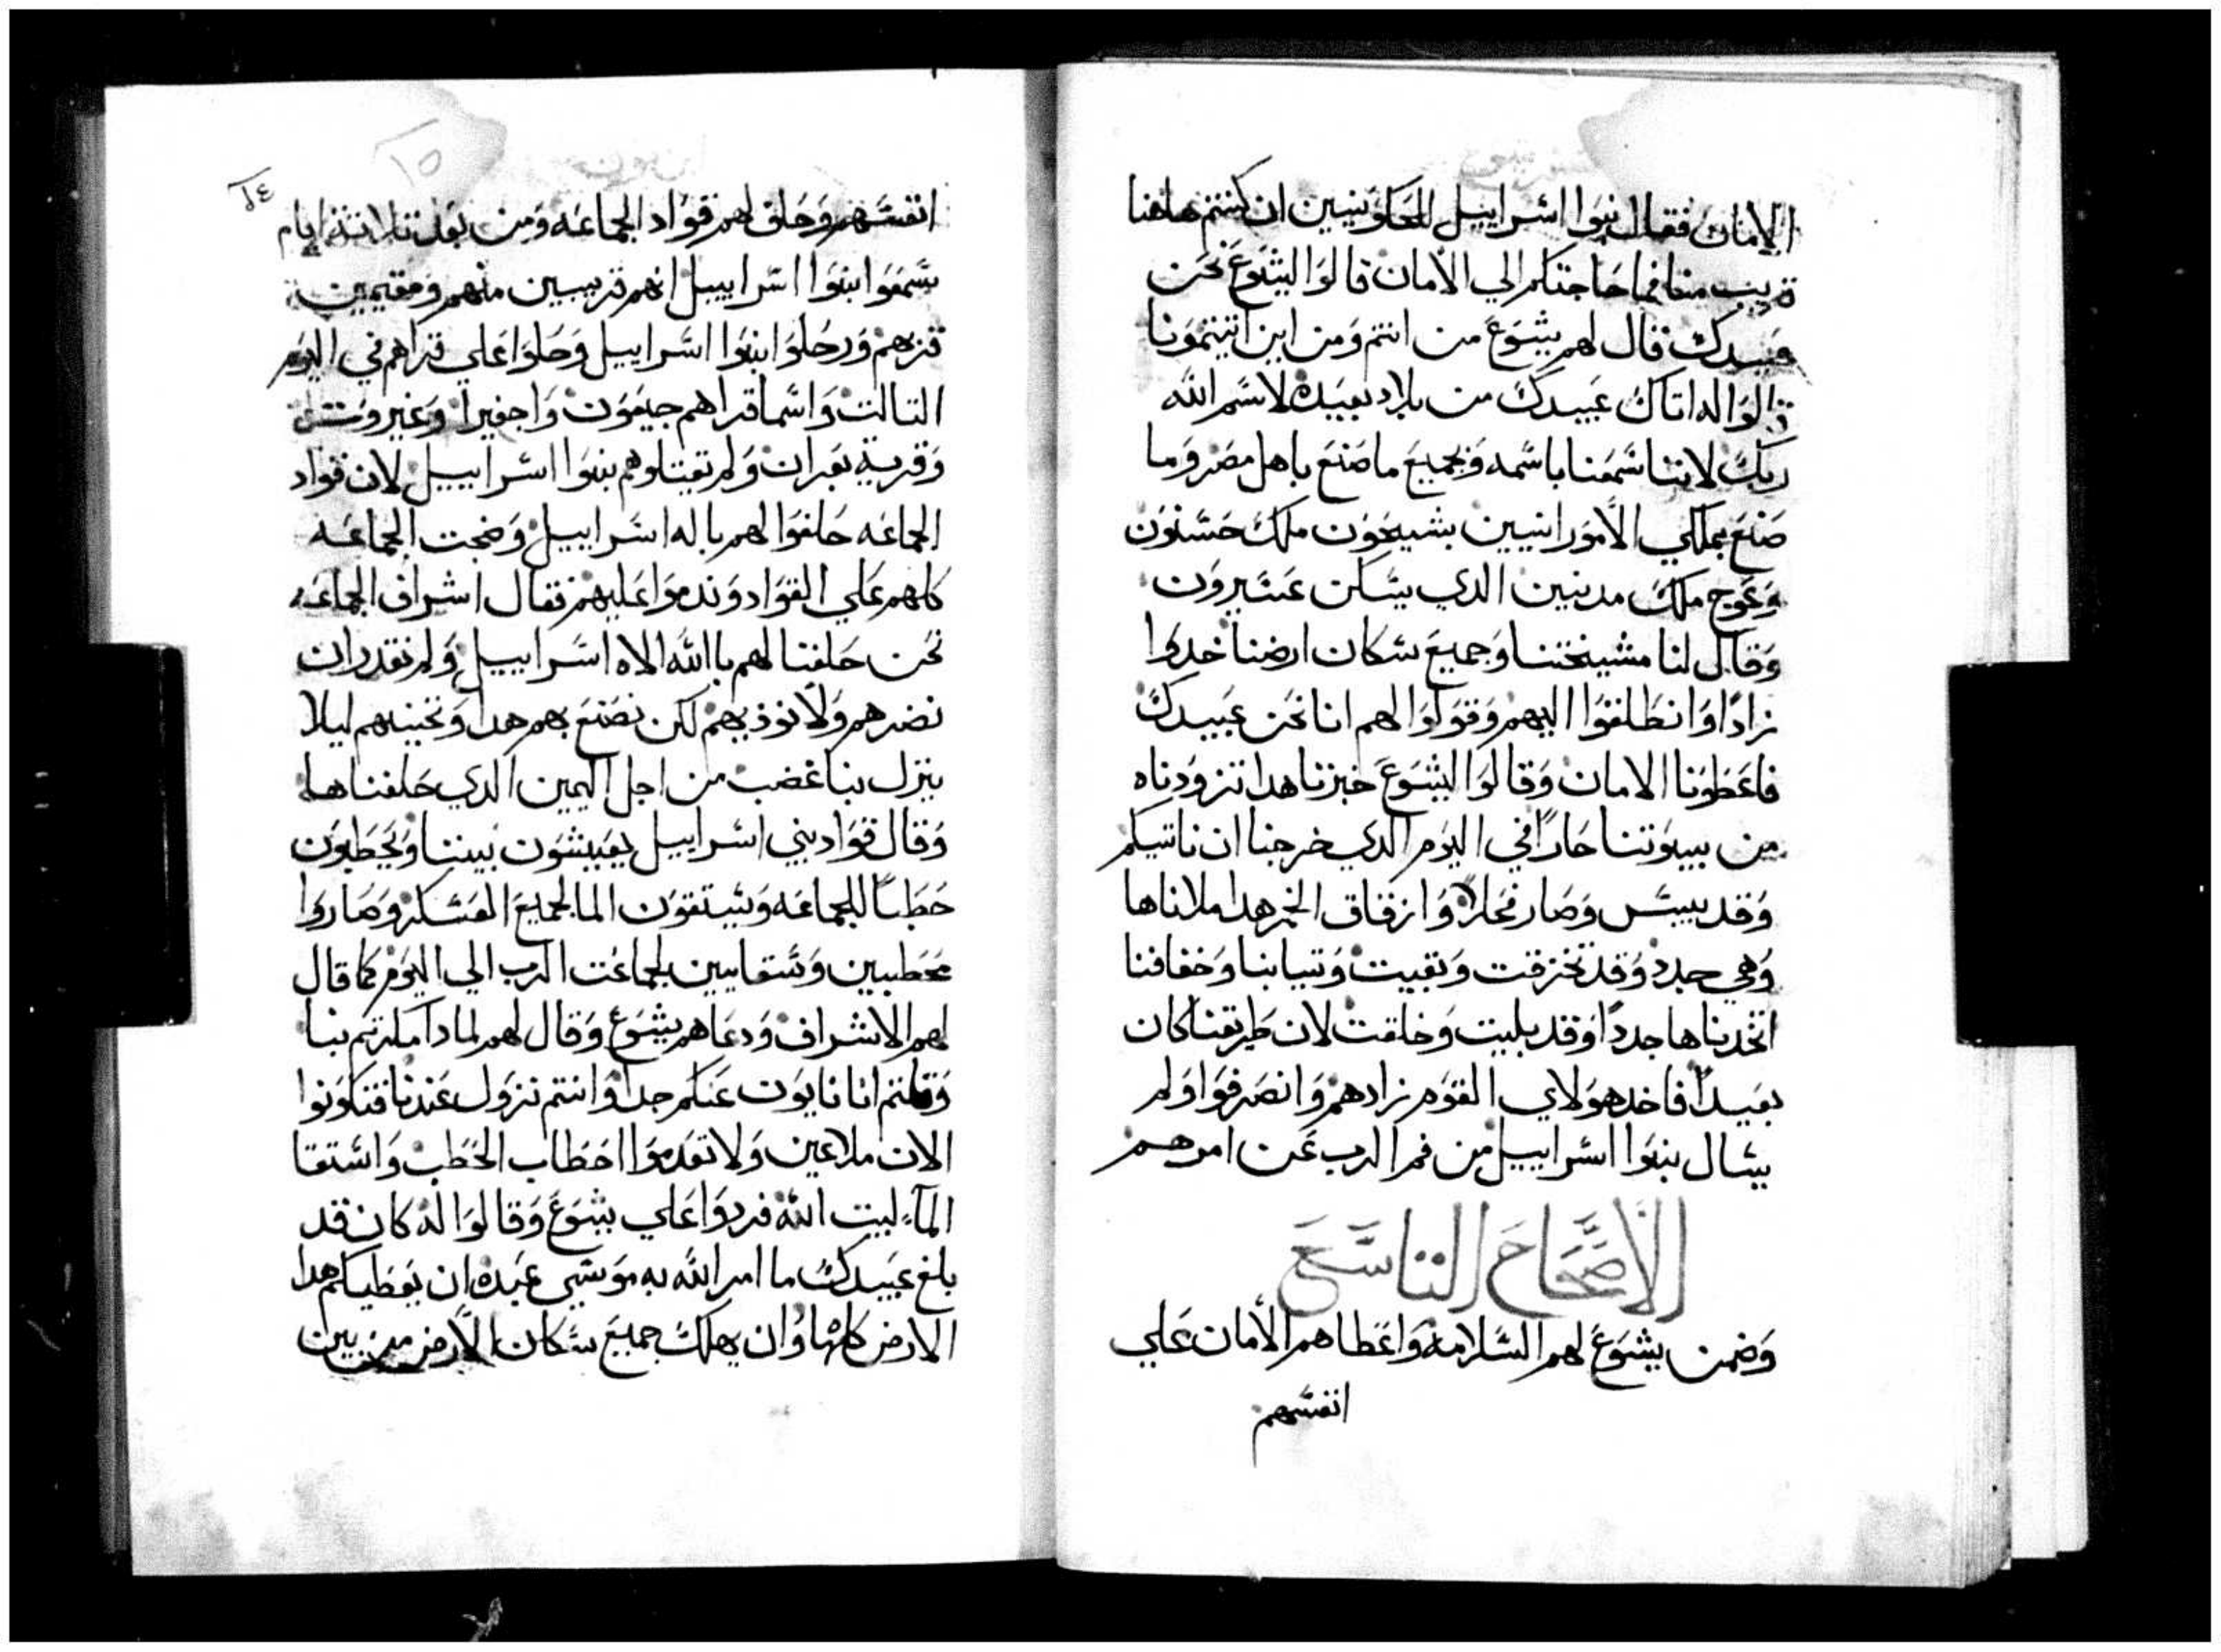 الامان فقال بنوا اسراييل للحاويين ان كنتم هاهنا
قريب منا فما حاجتكم الي الامان قالوا ليشوع نحن
عبيدك قال لهم يشوع من انتم ومن اين اتيتمونا
قالوا له اتاك عبيدك من بلاد بعيده لاسم الله
ربك لاننا سمعنا باسمه وبجميع ما صنع باهل مصر وما
صنع بملكي الامورانيين بشيحون ملك حسبون
وعوج ملك مدنيين الدي يسكن عشيرون
وقال لنا مشيختنا وجميع سكان ارضنا خدوا
زادا وانطلقوا اليهم وقولوا لهم انا نحن عبيدك
فاعطونا الامان وقالوا ليشوع خبزنا هدا تزودناه
من بييوتنا حارا في اليوم الدي خرجنا ان ناتيكم
وقد يبس وصار فحلا وازقاق الخمر هدا ملاناها
وهي جدد وقد تخزقت وبقيت وتيابنا وخفافنا
اتخدناها جددا وقد بليت وخلقت لان طريقنا كان
بعيدا فاخد هولاي القوم زادهم وانصرفوا ولم
يسال بنوا اسراييل من فم الرب عن امرهم
الاصحاح التاسع
وضمن يشوع لهم السلامه واعطاهم الامان علي
انفسهم
٢٤
١٥
انفسهم وحلف لهم قواد الجماعه ومن بعد تلاتة ايام
سمعوا بنوا اسراييل انهم قريبين منهم ومقيمين
قربهم ورحلوا بنوا اسراييل وحلوا علي قراهم في اليوم
التالت واسما قراهم جبعون واجفيرا وغيروت
وقرية بعرات ولم تقتلوهم بنوا اسراييل لان قواد
الجماعه حلفوا لهم باله اسراييل وضجت الجماعه
كلهم علي القواد وندموا عليهم فقال اشراف الجماعه
نحن حلفنا لهم بالله الاه اسراييل ولم نقدر ان
نضرهم ولا نوذيهم لكن نصنع بهم هدا ونحييهم ليلا
ينزل بنا غضب من اجل اليمين الدي حلفناها
وقال قواد بني اسراييل يعيشون بيننا ويحطبون
حطبا للجماعه ويستقون الما لجميع العسكر وصاروا
محطبين وسقايين لجماعت الرب الي اليوم كما قال
لهم الاشراف ودعاهم يشوع وقال لهم لمادا مكرتم بنا
وقلتم انا نايون عنكم جدا وانتم نزول عندنا فتكونوا
الان ملاعين ولا تعدموا احطاب الحطب واستقا
المآء لبيت الله فردوا علي يشوع وقالوا له كان قد
بلغ عبيدك ما امر الله به موسي عبده ان يعطيكم هدا
الارض كلها وان يهلك جميع سكان الارض من بين